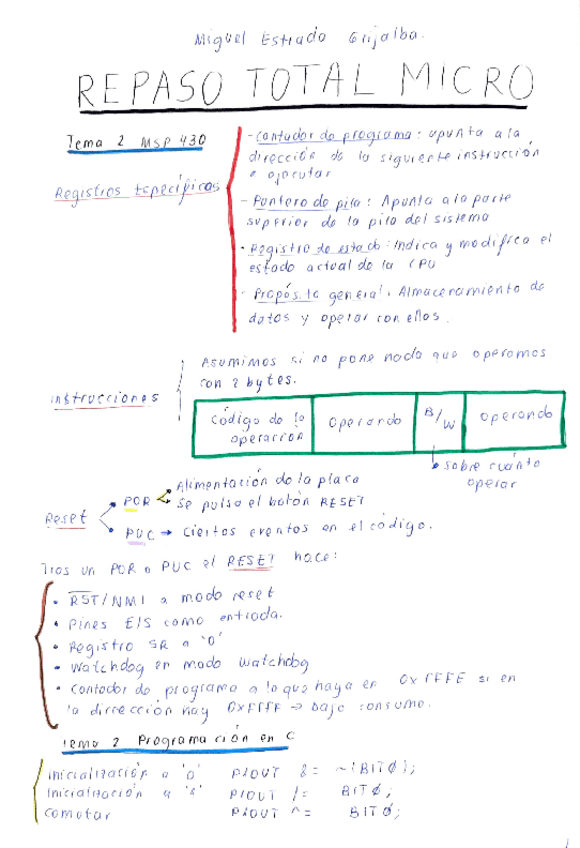 Miguel Estrada Grijalba.
REPASO TOTAL MICRO
Tema 2 MSP 430
Registros Específicos
- Contador de programa: apunta a la
dirección de la siguiente instrucción
a ejecutar
- Puntero de pila: Apunta a la parte
superior de la pila del sistema
· Registro de estado: Indica y modifica el
estado actual de la CPU
· Propósito general: Almacenamiento de
datos y operar con ellos.
instrucciones
Asumimos si no pone nada que operamos
con 2 bytes.
Código de la
operación
Operando
B/W
operando
sobre cuánto
operar
Reset
· POR
Alimentación de la placa
Se pulsa el botón RESET
· PUC → Ciertos eventos en el código.
Tras un POR o PUC el RESET hace:
· RST/NMI a modo reset
· Pines E/S como entrada.
· Registro SR a '0'
· Watchdog en modo watchdog
· Contador de programa a lo que haya en 0xFFFE si en
la dirección hay 0xFFFF → bajo consumo.
Tema 2 Programación en C
inicialización a '0' P1OUT &= ~(BIT0);
inicialización a '1' P1OUT |= BIT0;
comutar P1OUT ^= BIT0;